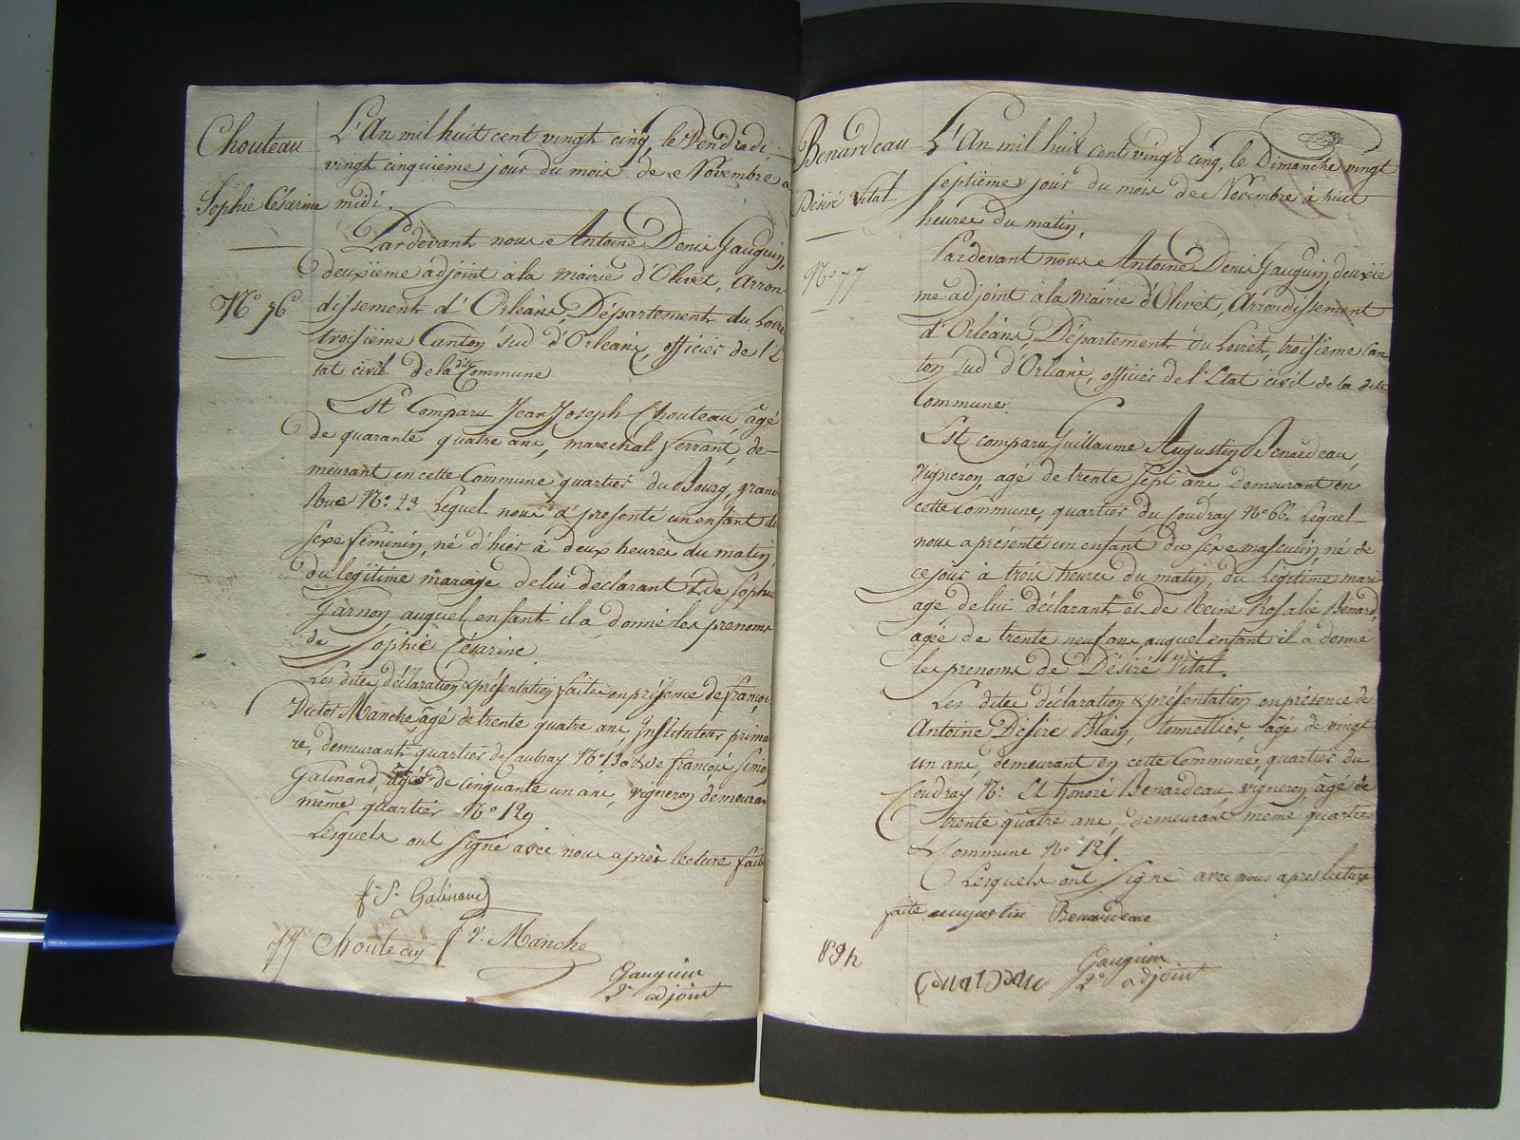 Chouteau
Sophie Césarine
N.º 76
L'An mil huit cent vingt cinq, le Vendredi
vingt cinquième jour du mois de Novembre à
midi.
Pardevant nous Antoine Denis Gauguin,
deuxième adjoint à la Mairie d'Olivet, Arron
dissement d'Orléans, Département du Loiret
troisième Canton sud d'Orléans, officier de l'E
tat civil de la dte Commune
Est Comparu Jean Joseph Chouteau, âgé
de quarante quatre ans, marechal ferrant, de-
meurant en cette Commune quartier du Bourg, grande
Rue N.º 23 Lequel nous a présenté un enfant du
sexe féminin, né d'hier à deux heures du matin,
du légitime mariage de lui déclarant & de Sophie
Garnon auquel enfant il a donné les prenoms
de Sophie Césarine
Les dites déclaration & présentation faites en présence de françois
Victor Manche âgé de trente quatre ans, Instituteur primai
re, demeurant quartier de Caubray N.º 130 & de françois Simon
Galinand, âgé de cinquante un ans, vigneron, demeurant
même quartier N.º 129
Lesquels ont signé avec nous après lecture faite
f. S. Galinand
Chouteau f. V. Manche
Gauguin
2e adjoint
Benardeau
Désiré Vital
N.º 77
L'An mil huit cent vingt cinq, le Dimanche vingt
septième jour du mois de Novembre à huit
heures du matin,
Pardevant nous Antoine Denis Gauguin, deuxiè
me adjoint à la Mairie d'Olivet, Arrondissement
d'Orléans, Département du Loiret, troisième Can
ton sud d'Orléans, officier de l'Etat civil de la dite
Commune.
Est comparu Guillaume Augustin Benardeau,
Vigneron, agé de trente sept ans demeurant en
cette Commune, quartier du Coudray N.º 66. Lequel
nous a présenté un enfant du sexe masculin né de
ce jour à trois heures du matin, du légitime mari
age de lui déclarant et de Reine Rosalie Benard,
agée de trente neuf ans, auquel enfant il a donné
les prenoms de Désiré Vital.
Les dites déclaration & présentation en présence de
Antoine Désiré Blain, tonnellier, âgé de vingt
un ans, demeurant en cette Commune, quartier du
Coudray N.º Et honoré Benardeau vigneron, âgé de
trente quatre ans, demeurant même quartier
& Commune N.º 121.
Lesquels ont signé avec nous après lecture
faite augustin Benardeau
Gauguin
2e adjoint